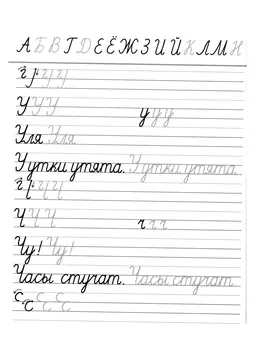 А Б В Г Д Е Ё Ж З И Й К Л М Н
У У У у у у
Уля Уля
У утки утята. У утки утята.
Ч Ч Ч ч ч ч
Чу! Чу!
Часы стучат. Часы стучат.
С С С С